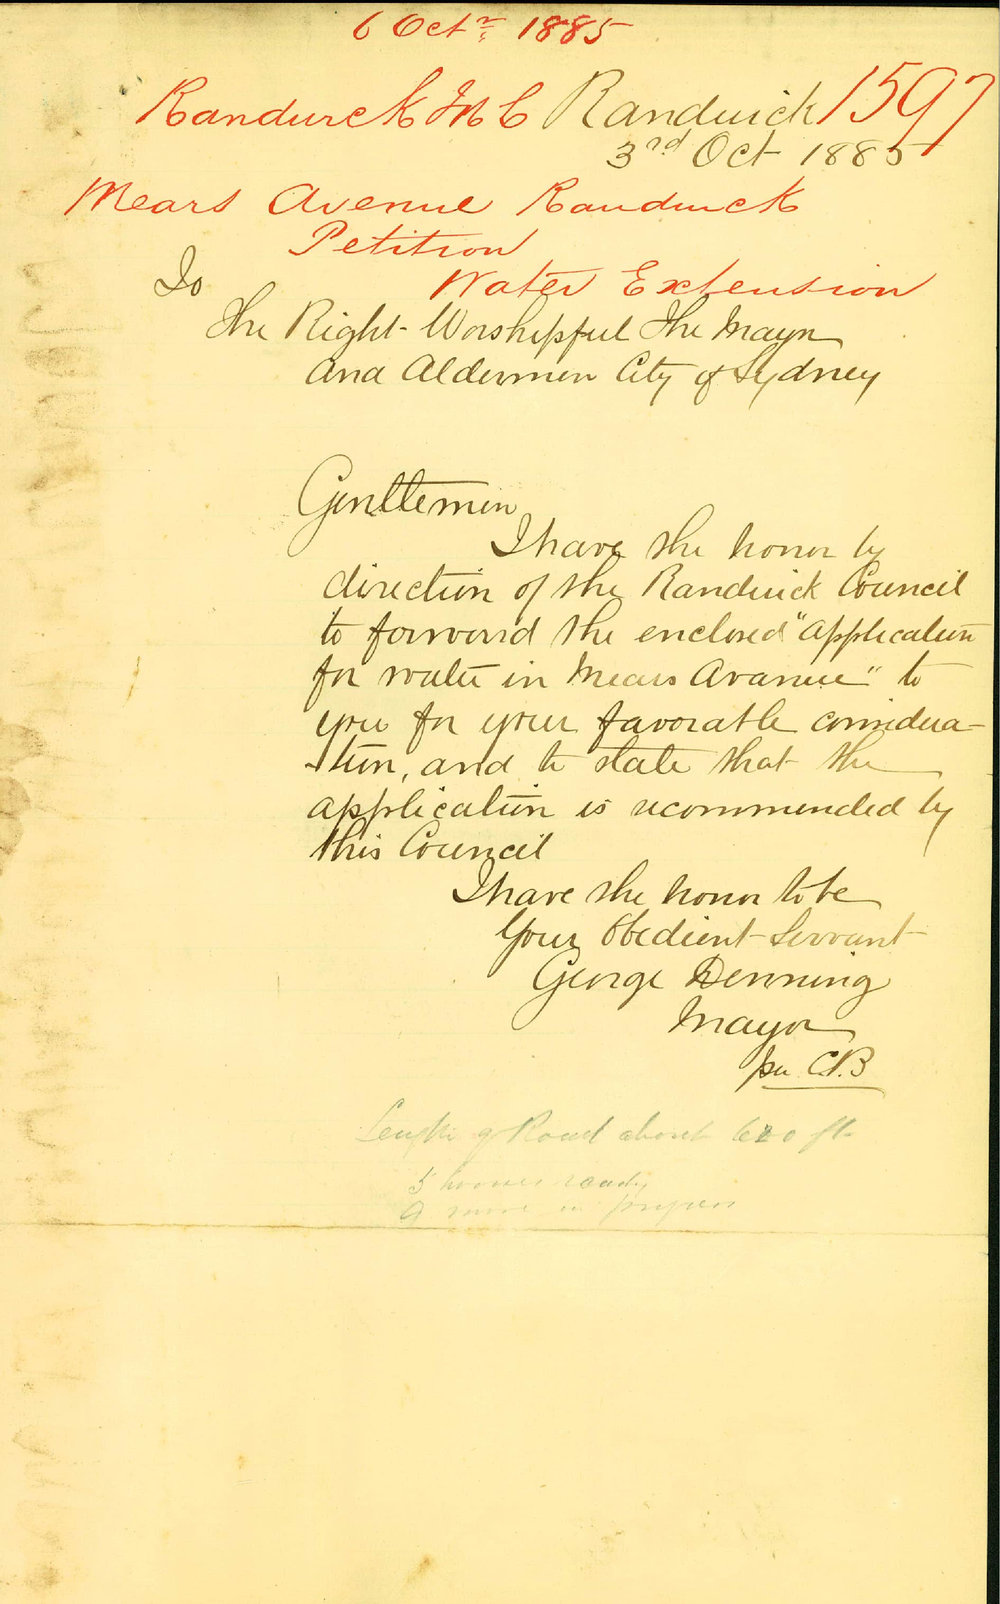 6 Octr. 1885
Randwick M C Randwick 1597
3rd Oct 1885
Mears Avenue Randwick
Petition
Water Extension
To
The Right Worshipful The Mayor
and Aldermen City of Sydney
Gentlemen
I have the honor by
direction of the Randwick Council
to forward the enclosed "application
for water in Mears Avanue" to
you for your favorable considera-
tion, and to state that the
application is recommended by
this Council
I have the honor to be
Your Obedient Servant
George Denning
Mayor
per C.B
Length of Road about 620 ft
5 houses ready
9 more in progress